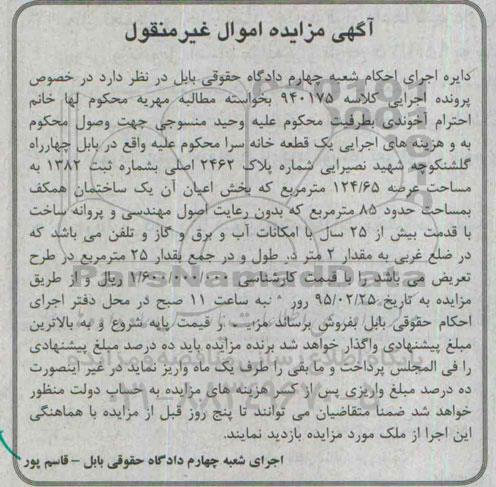 آگهی مزایده اموال غیرمنقول
دایره اجرای احکام شعبه چهارم دادگاه حقوقی بابل در نظر دارد در خصوص
پرونده اجرایی کلاسه ۹۴۰۱۷۵ بخواسته مطالبه مهریه محکوم لها خانم
احترام آخوندی بطرفیت محکوم علیه وحید منسوجی جهت وصول محکوم
به و هزینه های اجرایی یک قطعه خانه سرا محکوم علیه واقع در بابل چهارراه
گلشنکوچه شهید نصیرایی شماره پلاک ۲۴۶۲ اصلی بشماره ثبت ۱۳۸۲ به
مساحت عرصه ۱۲۴/۶۵ مترمربع که بخش اعیان آن یک ساختمان همکف
بمساحت حدود ۸۵ مترمربع که بدون رعایت اصول مهندسی و پروانه ساخت
با قدمت بیش از ۲۵ سال با امکانات آب و برق و گاز و تلفن می باشد که
در ضلع غربی به مقدار ۲ متر در طول و در جمع بقدار ۲۵ مترمربع در طرح
تعریض می باشد را با قیمت کارشناسی ریال و از طریق
مزایده به تاریخ ۹۵/۰۲/۲۵ روز ساعت ۱۱ صبح در محل دفتر اجرای
احکام حقوقی بابل بفروش برساند قیمت پایه شروع و به بالاترین
مبلغ پیشنهادی واگذار خواهد شد برنده مزایده باید ده درصد مبلغ پیشنهادی
را فی المجلس پرداخت و ما بقی را ظرف یک ماه واریز نماید در غیر اینصورت
ده درصد مبلغ واریزی پس از کسر هزینه های مزایده به حساب دولت منظور
خواهد شد ضمنا متقاضیان می توانند تا پنج روز قبل از مزایده با هماهنگی
این اجرا از ملک مورد مزایده بازدید نمایند.
اجرای شعبه چهارم دادگاه حقوقی بابل - قاسم پور
ParsNamadData
پایگاه اطلاع رسانی مناقصه و مزایده